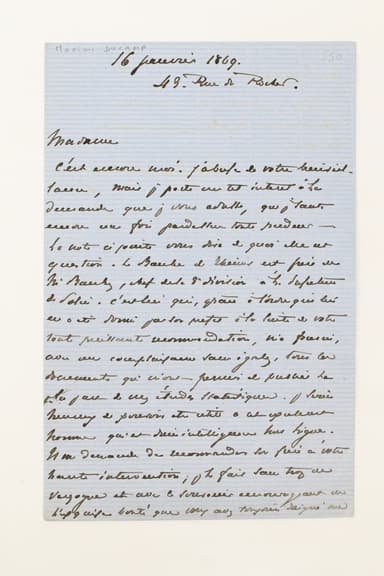 Maxime Ducamp
16 janvier 1869.
43. Rue de Rocher.
Madame
C'est encore moi. J'abuse de votre bienveil-
lance, mais j'porte un tel interet à la
demande que j vous adresse, que j
encore une fois toute pudeur -
la note ci jointe vous dira de quoi elle est
question. Le est frère de
Mr chef de la 2e division à la Préfecture
de Police. C'est lui qui, grâce à l'ordre qui lui
en a été donné par son préfet à la suite de votre
toute puissante recommandation, m'a fourni,
avec une complaisance sans égale, tous les
documents qui m'ont permis de publier la
études j serais
heureux de pouvoir être utile à cet excellent
homme qui est d'une intelligence hors ligne.
Il me demande de recommander son frère à votre
haute intervention; j le fais sans trop de
vergogne et avec le souvenir encourageant de
l'exquise bonté que vous avez toujours daigné me